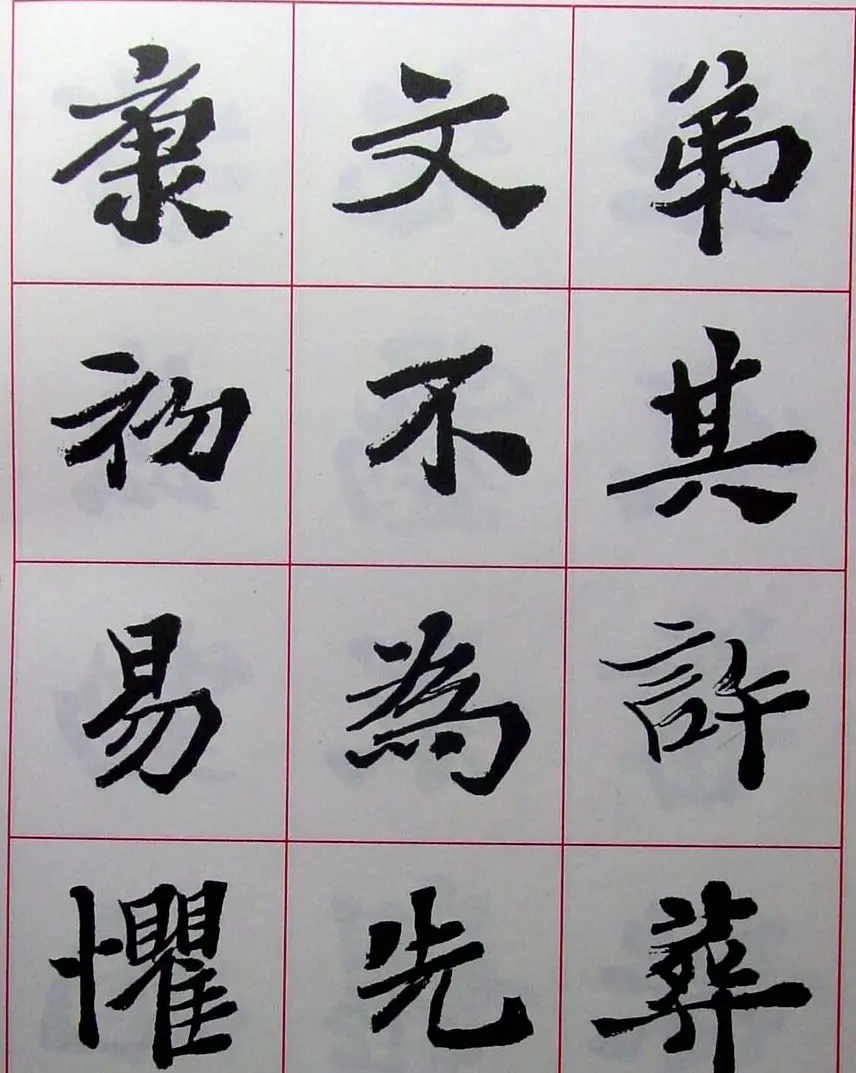 弟其許葬
文不為先
康初易懼